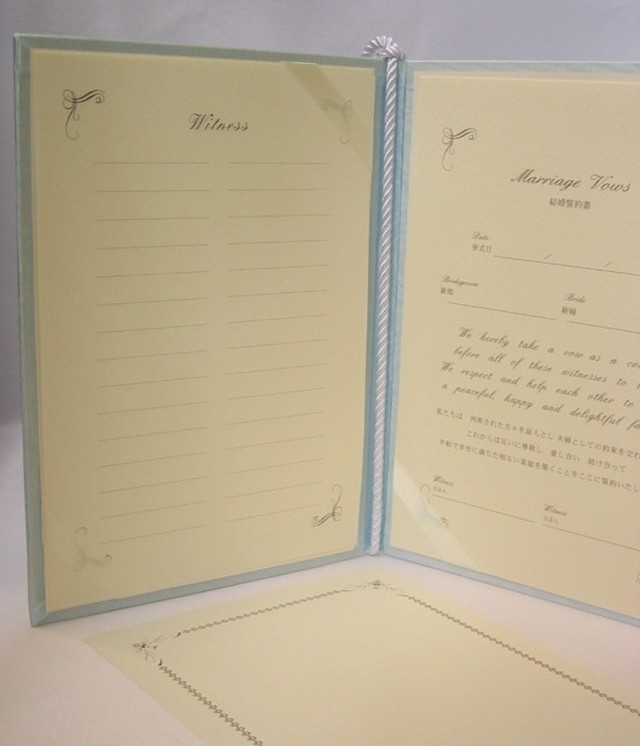 Witness
Marriage Vows
結婚誓約書
Date
挙式日 / /
Bridegroom
新郎
Bride
新婦
We hereby take a vow as a
before all of these witnesses to
We respect and help each other to
a peaceful, happy and delightful
私たちは 列席された方々を証人とし 夫婦としての約束を交わ
これからは互いに尊敬し 愛し合い 助け合って
平和で幸せに満ちた明るい家庭を築くことをここに誓約いたし
Witness
立会人
Witness
立会人